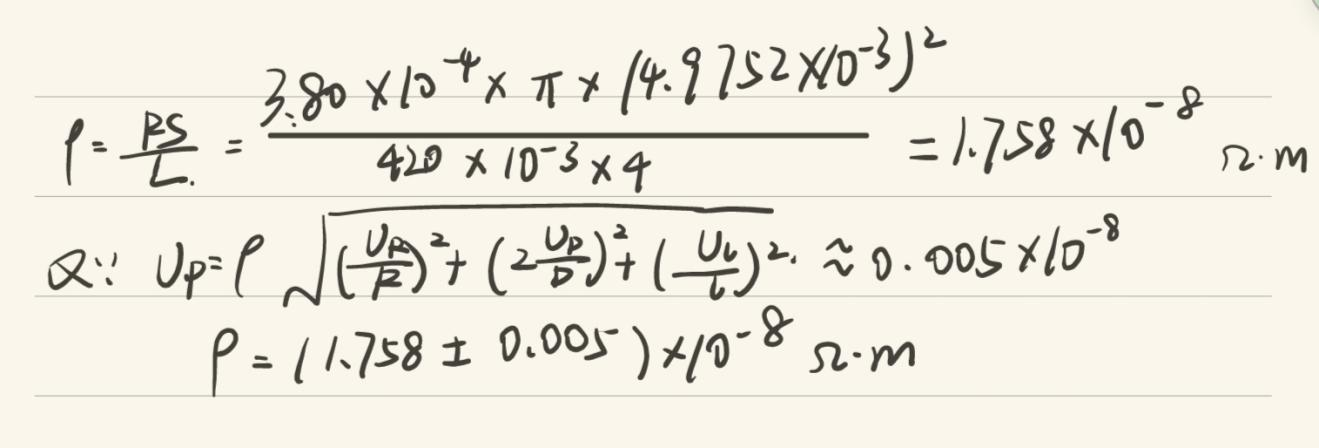 ρ = RS/L. = 3.80 × 10⁻⁴ × π × (4.9752×10⁻³)² / 420 × 10⁻³ × 4 = 1.758 × 10⁻⁸ Ω·m
又∵ Uρ = ρ √(U_R/R)² + (2 U_D/D)² + (U_L/L)². ≈ 0.005×10⁻⁸
ρ = (1.758 ± 0.005) × 10⁻⁸ Ω·m